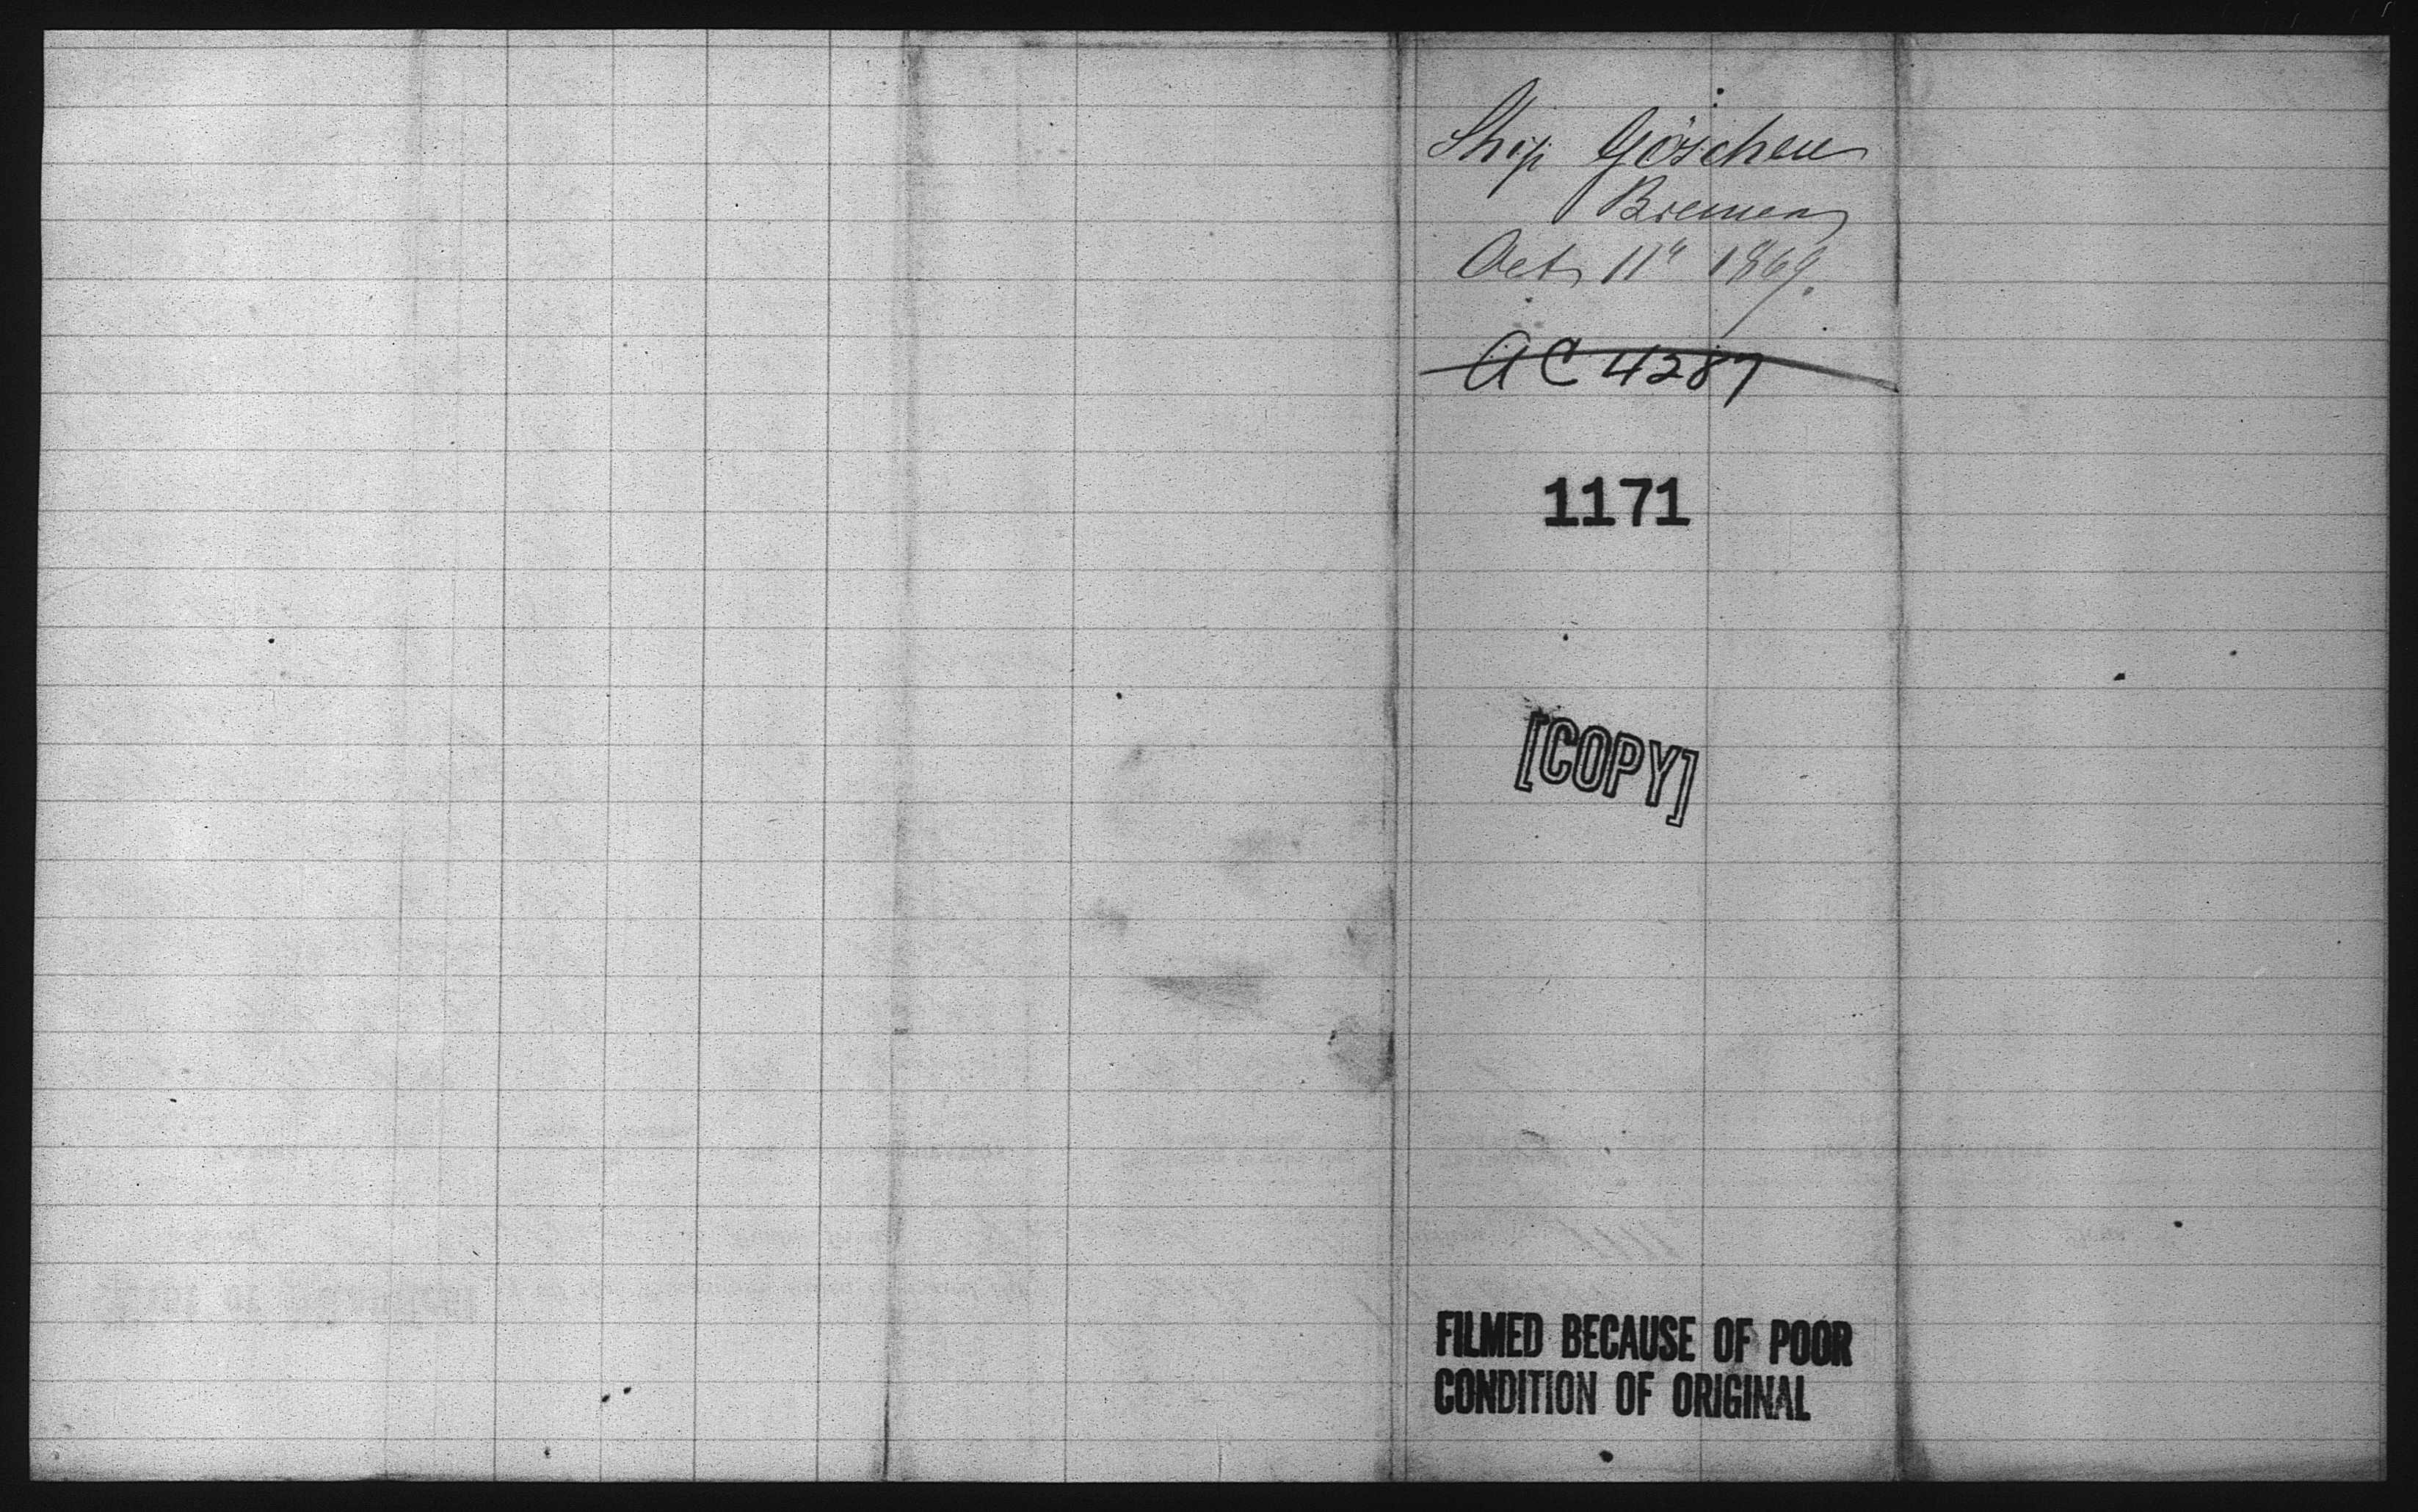 Ship Göschen
Bremen
Oct 11" 1869.
AC 4287
1171
[COPY]
FILMED BECAUSE OF POOR
CONDITION OF ORIGINAL